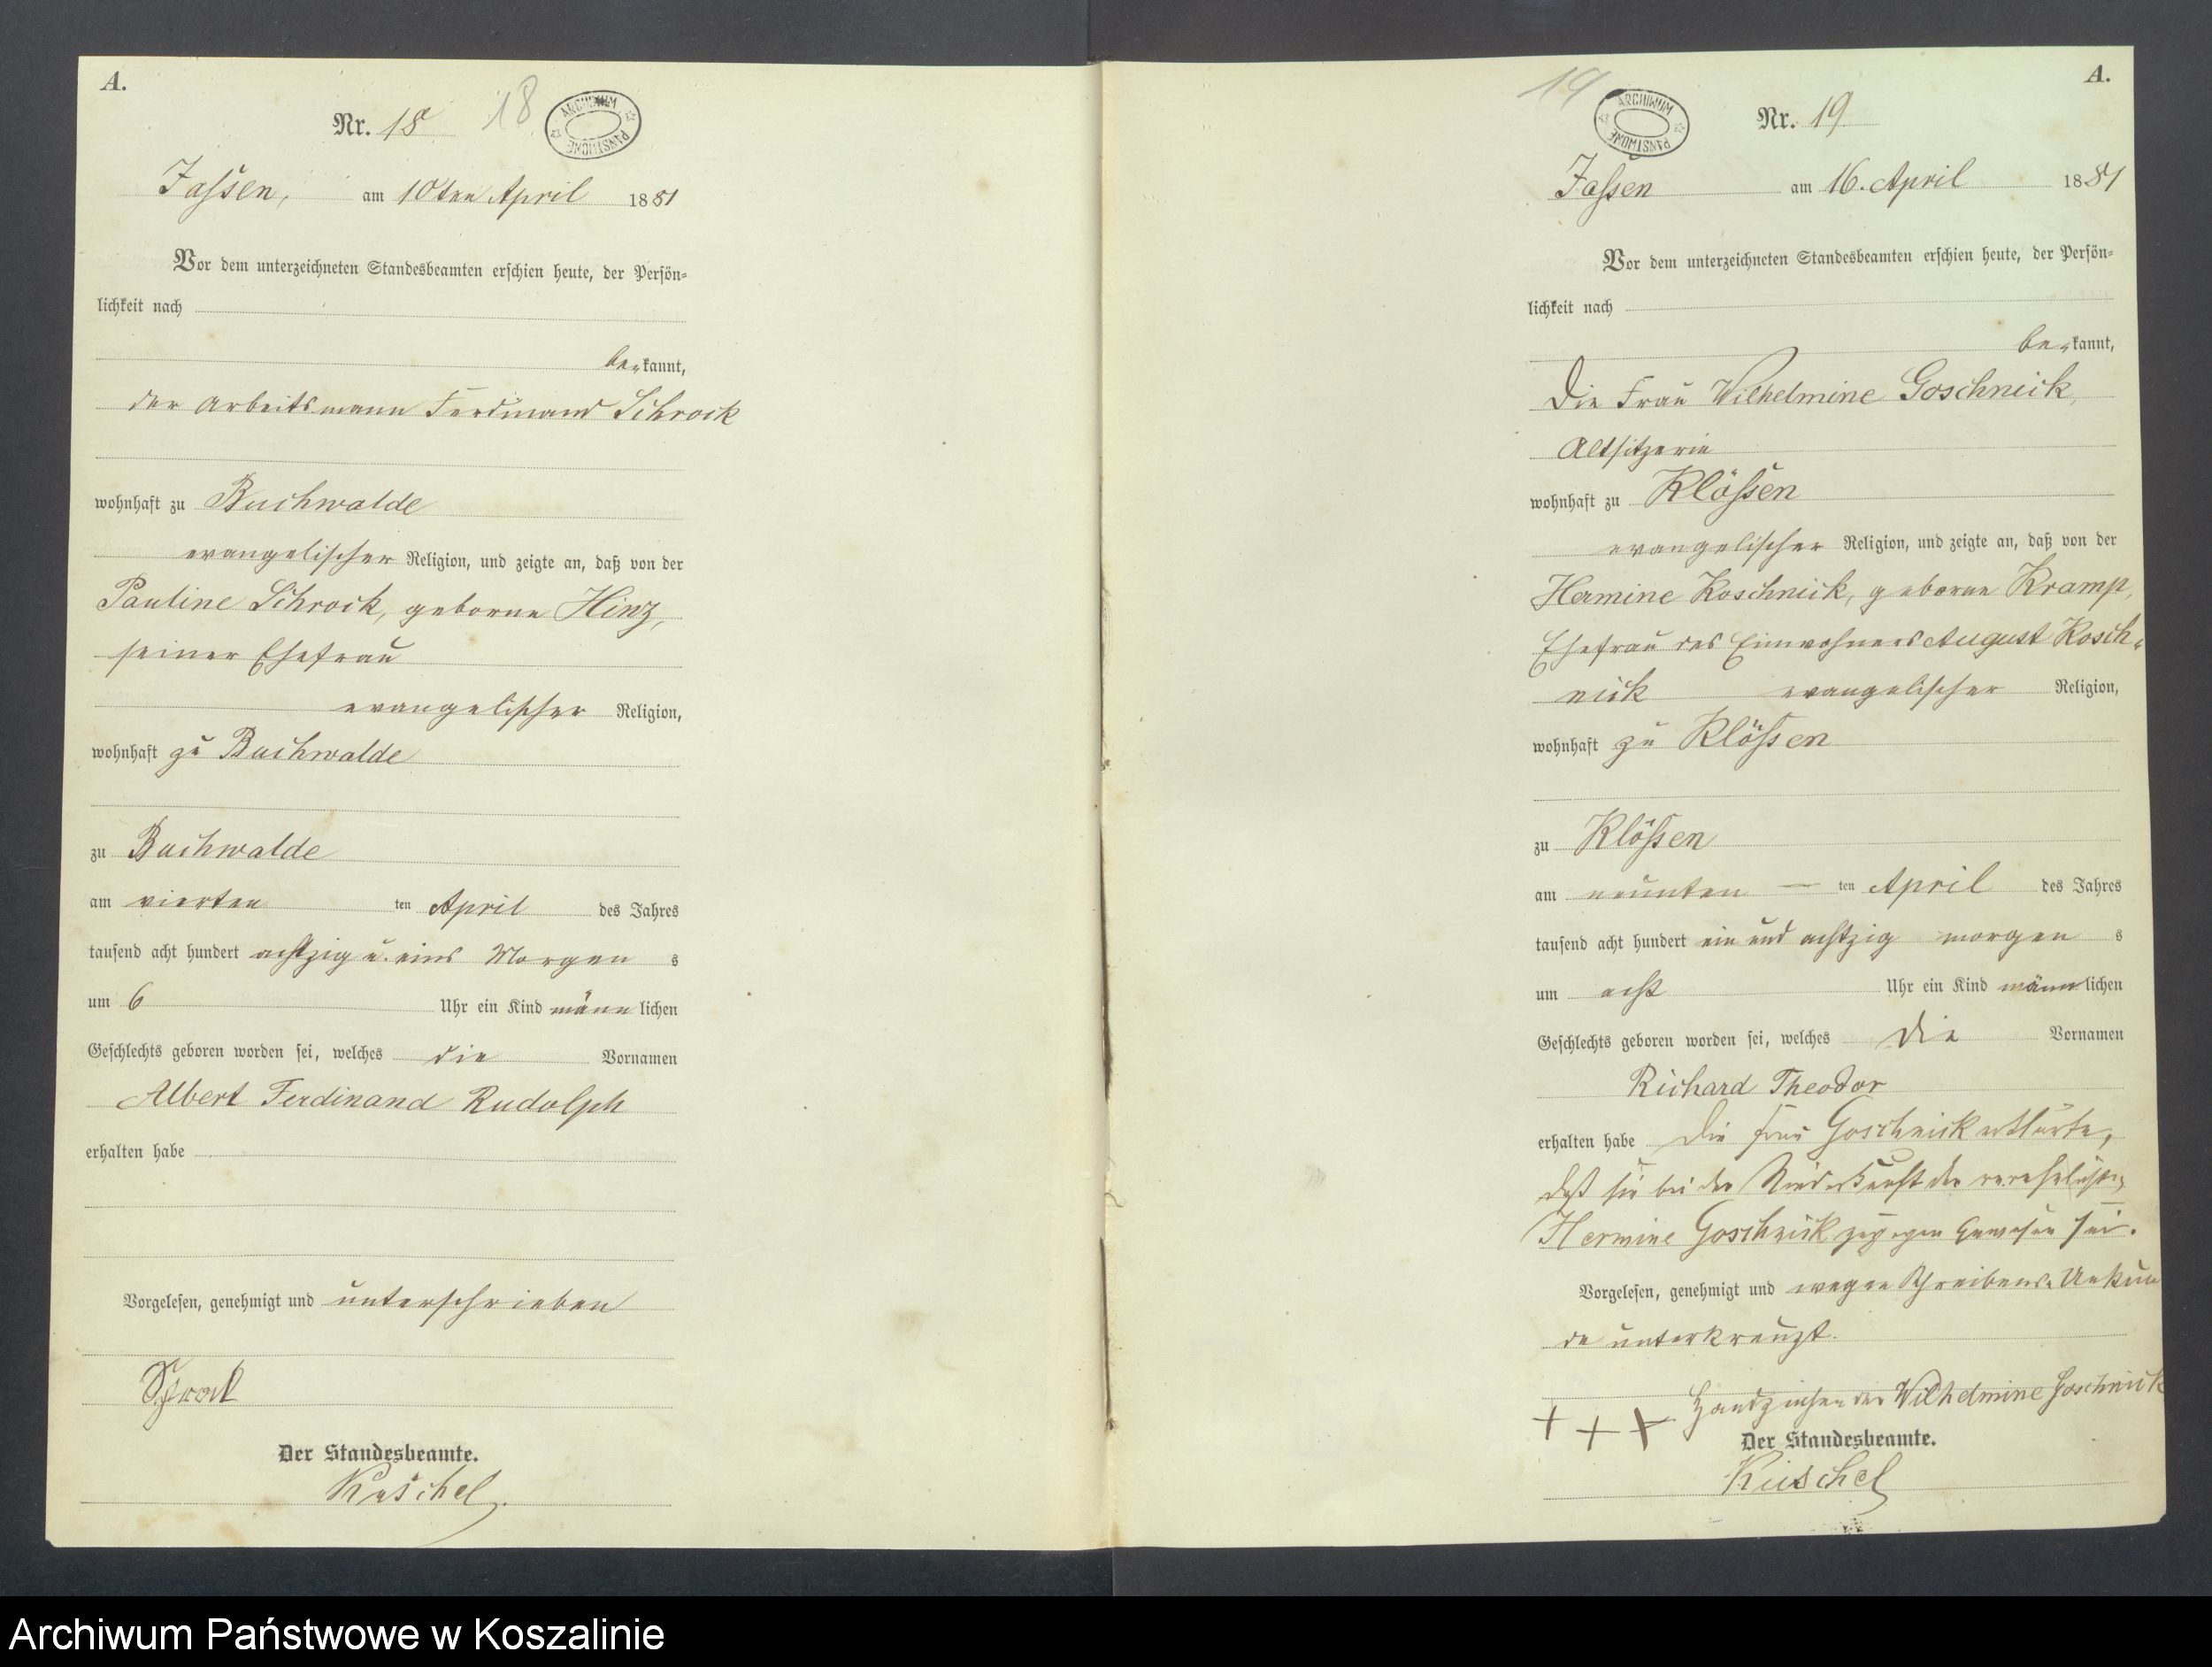 A.
Nr. 18
18
ARCHIWUM PAŃSTWOWE
Jassen, am 10ten April 1881
Vor dem unterzeichneten Standesbeamten erschien heute, der Persön=
lichkeit nach
be„kannt,
der Arbeitsmann Ferdinand Schrock
wohnhaft zu Buchwalde
evangelischer Religion, und zeigte an, daß von der
Pauline Schrock, geborne Hinz,
seiner Ehefrau
evangelischer Religion,
wohnhaft zu Buchwalde
zu Buchwalde
am vierten ten April des Jahres
tausend acht hundert achtzig u. eins Morgen s
um 6 Uhr ein Kind männ lichen
Geschlechts geboren worden sei, welches die Vornamen
Albert Ferdinand Rudolph
erhalten habe
Vorgelesen, genehmigt und unterschrieben
Schrock
Der Standesbeamte.
Kuschel
A.
19
ARCHIWUM PAŃSTWOWE
Nr. 19
Jassen am 16. April 1881
Vor dem unterzeichneten Standesbeamten erschien heute, der Persön=
lichkeit nach
be„kannt,
Die Frau Wilhelmine Goschnick,
Altsitzerin
wohnhaft zu Klössen
evangelischer Religion, und zeigte an, daß von der
Hermine Koschnick, geborne Kramp,
Ehefrau des Einwohners August Kosch„
nick evangelischer Religion,
wohnhaft zu Klössen
zu Klössen
am neunten — ten April des Jahres
tausend acht hundert ein und achtzig morgen s
um acht Uhr ein Kind männlichen
Geschlechts geboren worden sei, welches die Vornamen
Richard Theodor
erhalten habe Die Frau Goschnick erklärte,
daß sie bei der Niederkunft der verehelichten
Hermine Goschnick zugegen gewesen sei.
Vorgelesen, genehmigt und wegen Schreibens„Unkun
de unterkreuzt.
+ + + Handzeichen der Wilhelmine Goschnick
Der Standesbeamte.
Kuschel
Archiwum Państwowe w Koszalinie